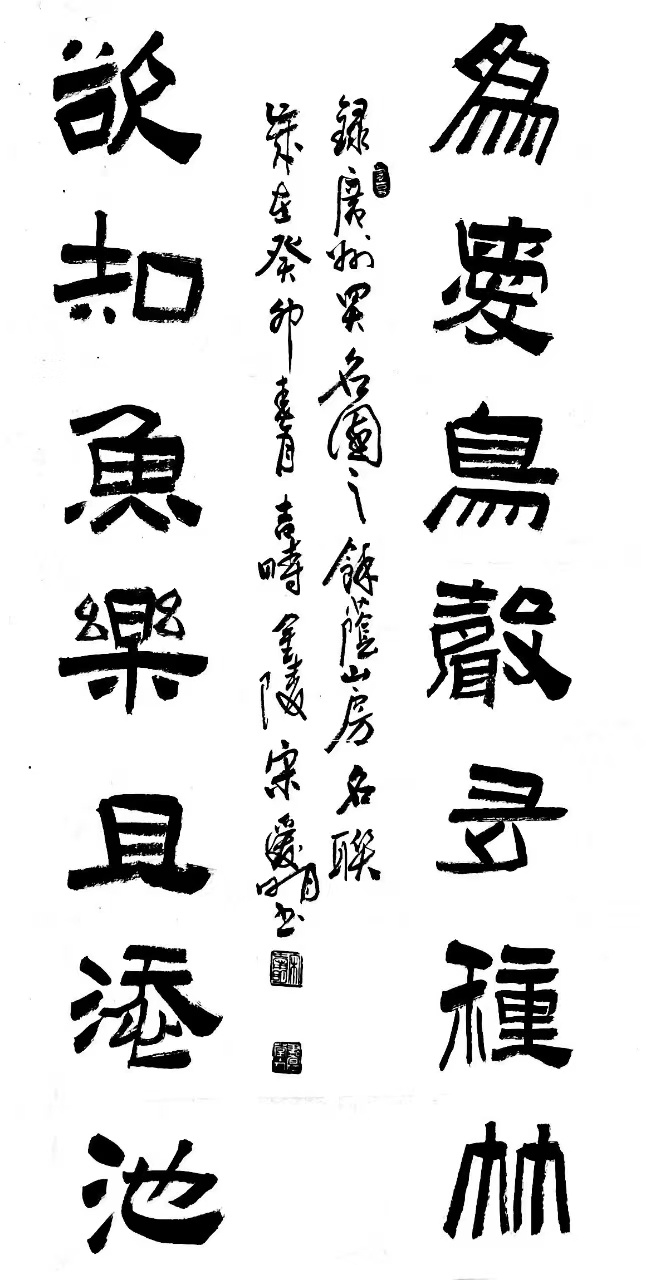 為愛鳥聲多種林
錄廣州四大名園之餘蔭山房名聯
歲在癸卯春月吉時金陵宋愛明書
欲知魚樂且添池